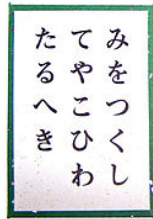 みをつくし
てやこひわ
たるへき